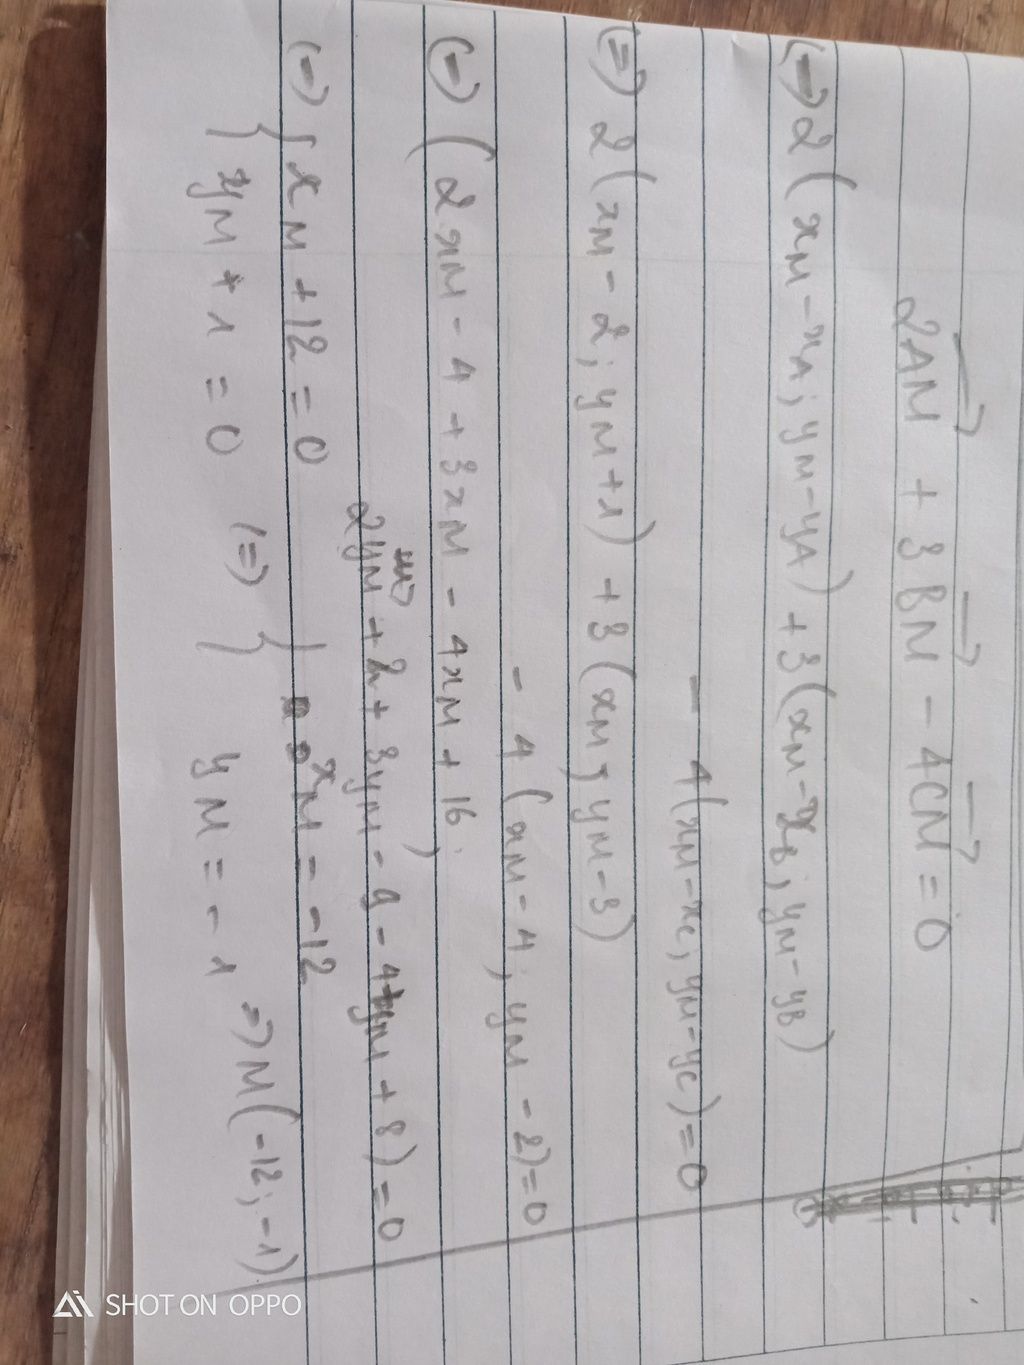 2AM + 3BM - 4CM = 0
(=) 2(xM - xA; yM - yA) + 3(xM - xB; yM - yB)
- 4(xM - xC; yM - yC) = 0
(=) 2(xM - 2; yM + 1) + 3(xM; yM - 3)
- 4(xM - 4; yM - 2) = 0
(=) (2xM - 4 + 3xM - 4xM + 16;
2yM + 2 + 3yM - 9 - 4yM + 8) = 0
(=) { xM + 12 = 0
{ yM + 1 = 0 (=) { xM = -12
yM = -1 => M(-12; -1)
SHOT ON OPPO